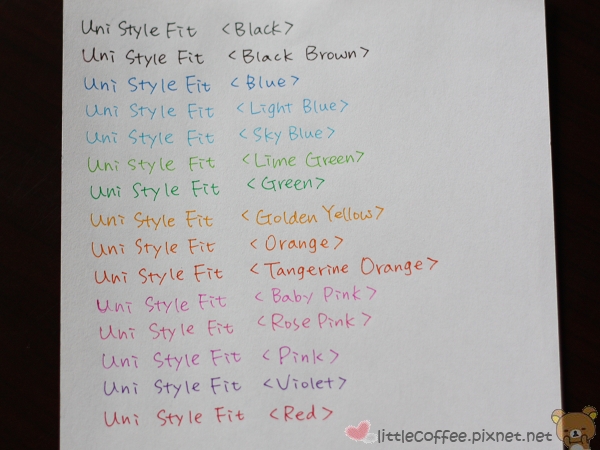 Uni Style Fit <Black>
Uni Style Fit <Black Brown>
Uni Style Fit <Blue>
Uni Style Fit <Light Blue>
Uni Style Fit <Sky Blue>
Uni Style Fit <Lime Green>
Uni Style Fit <Green>
Uni Style Fit <Golden Yellow>
Uni Style Fit <Orange>
Uni Style Fit <Tangerine Orange>
Uni Style Fit <Baby Pink>
Uni Style Fit <Rose Pink>
Uni Style Fit <Pink>
Uni Style Fit <Violet>
Uni Style Fit <Red>
littlecoffee.pixnet.net